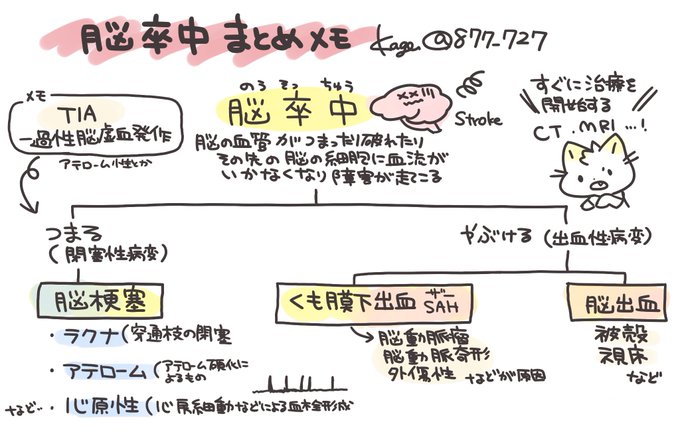 脳卒中まとめメモ Kagu @877_727
メモ
TIA
一過性脳虚血発作
アテローム性とか
のう そっ ちゅう
脳卒中
Stroke
脳の血管がつまったり破れたり
その先の脳の細胞に血流が
いかなくなり障害が起こる
すぐに治療を
開始する
CT.MRI…!
つまる
(閉塞性病変)
やぶける(出血性病変)
脳梗塞
・ラクナ(穿通枝の閉塞
・アテローム(アテローム硬化に
よるもの
など… ・心原性(心房細動などによる血栓形成
くも膜下出血 SAH
ザー
→脳動脈瘤
脳動脈奇形
外傷性 などが原因
脳出血
被殻
視床
など